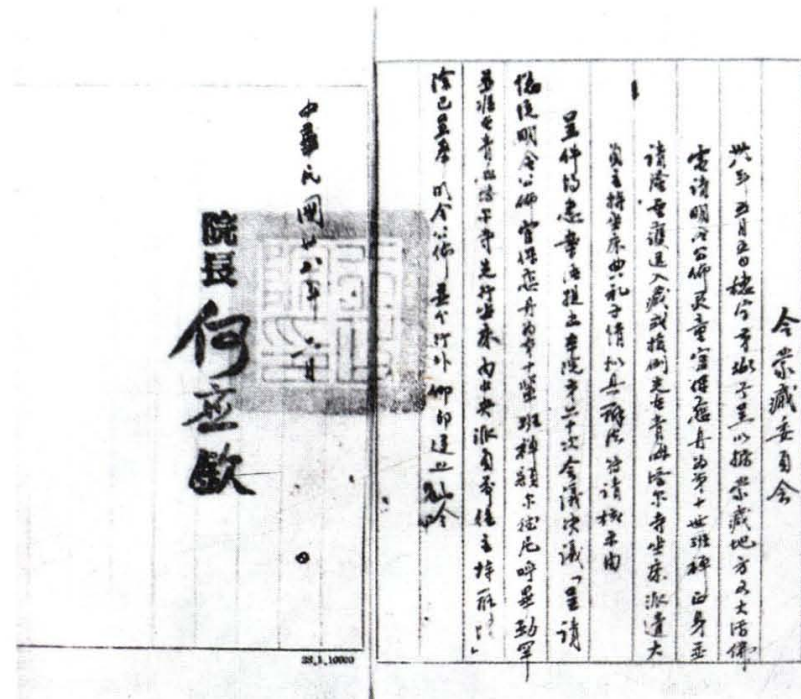 令蒙藏委員會
卅八年五月五日穗字第 號呈以據蒙藏地方及大活佛
電請明令公佈灵童官保慈丹為第十世班禪正身並
請隆重護送入藏或援例先在青海塔尔寺坐床派遣大
員主持坐床典礼予情擬具辦法 請核示由
呈件均悉 本院第六十次會議決議「呈請
總統明令公佈官保慈丹為第十世班禪額尔德尼呼畢勒罕
並准在青海塔尔寺先行坐床由中央派員前往主持
除已呈奉明令公佈並分行外仰即遵照此令
中華民國卅八年六月
院長何應欽
38.5.10000